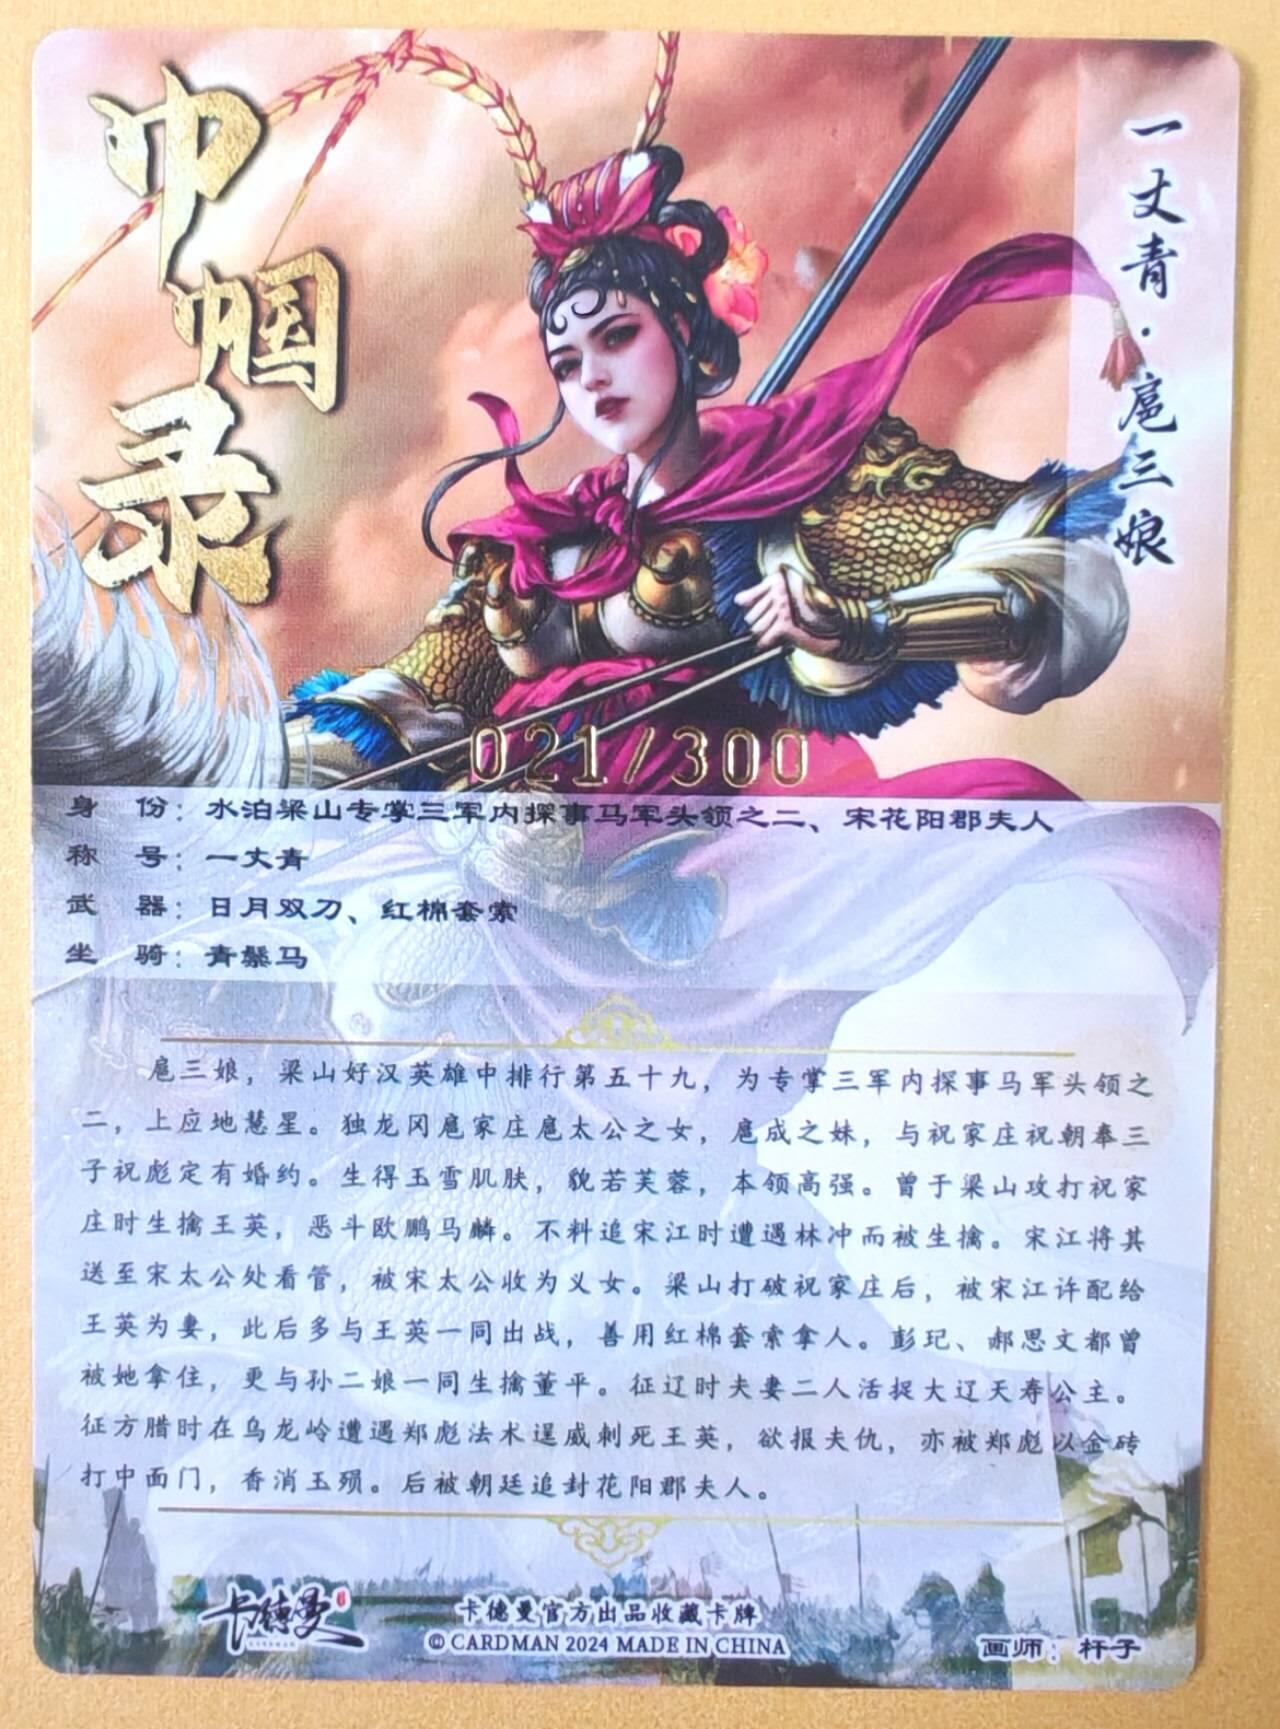 巾帼录
一丈青·扈三娘
021/300
身 份：水泊梁山专掌三军内探事马军头领之二、宋花阳郡夫人
称 号：一丈青
武 器：日月双刀、红棉套索
坐 骑：青鬃马
扈三娘，梁山好汉英雄中排行第五十九，为专掌三军内探事马军头领之
二，上应地慧星。独龙冈扈家庄扈太公之女，扈成之妹，与祝家庄祝朝奉三
子祝彪定有婚约。生得玉雪肌肤，貌若芙蓉，本领高强。曾于梁山攻打祝家
庄时生擒王英，恶斗欧鹏马麟。不料追宋江时遭遇林冲而被生擒。宋江将其
送至宋太公处看管，被宋太公收为义女。梁山打破祝家庄后，被宋江许配给
王英为妻，此后多与王英一同出战，善用红棉套索拿人。彭玘、郝思文都曾
被她拿住，更与孙二娘一同生擒董平。征辽时夫妻二人活捉大辽天寿公主。
征方腊时在乌龙岭遭遇郑彪法术逞威刺死王英，欲报夫仇，亦被郑彪以金砖
打中面门，香消玉殒。后被朝廷追封花阳郡夫人。
卡德曼
卡德曼官方出品收藏卡牌
© CARDMAN 2024 MADE IN CHINA
画师：杆子